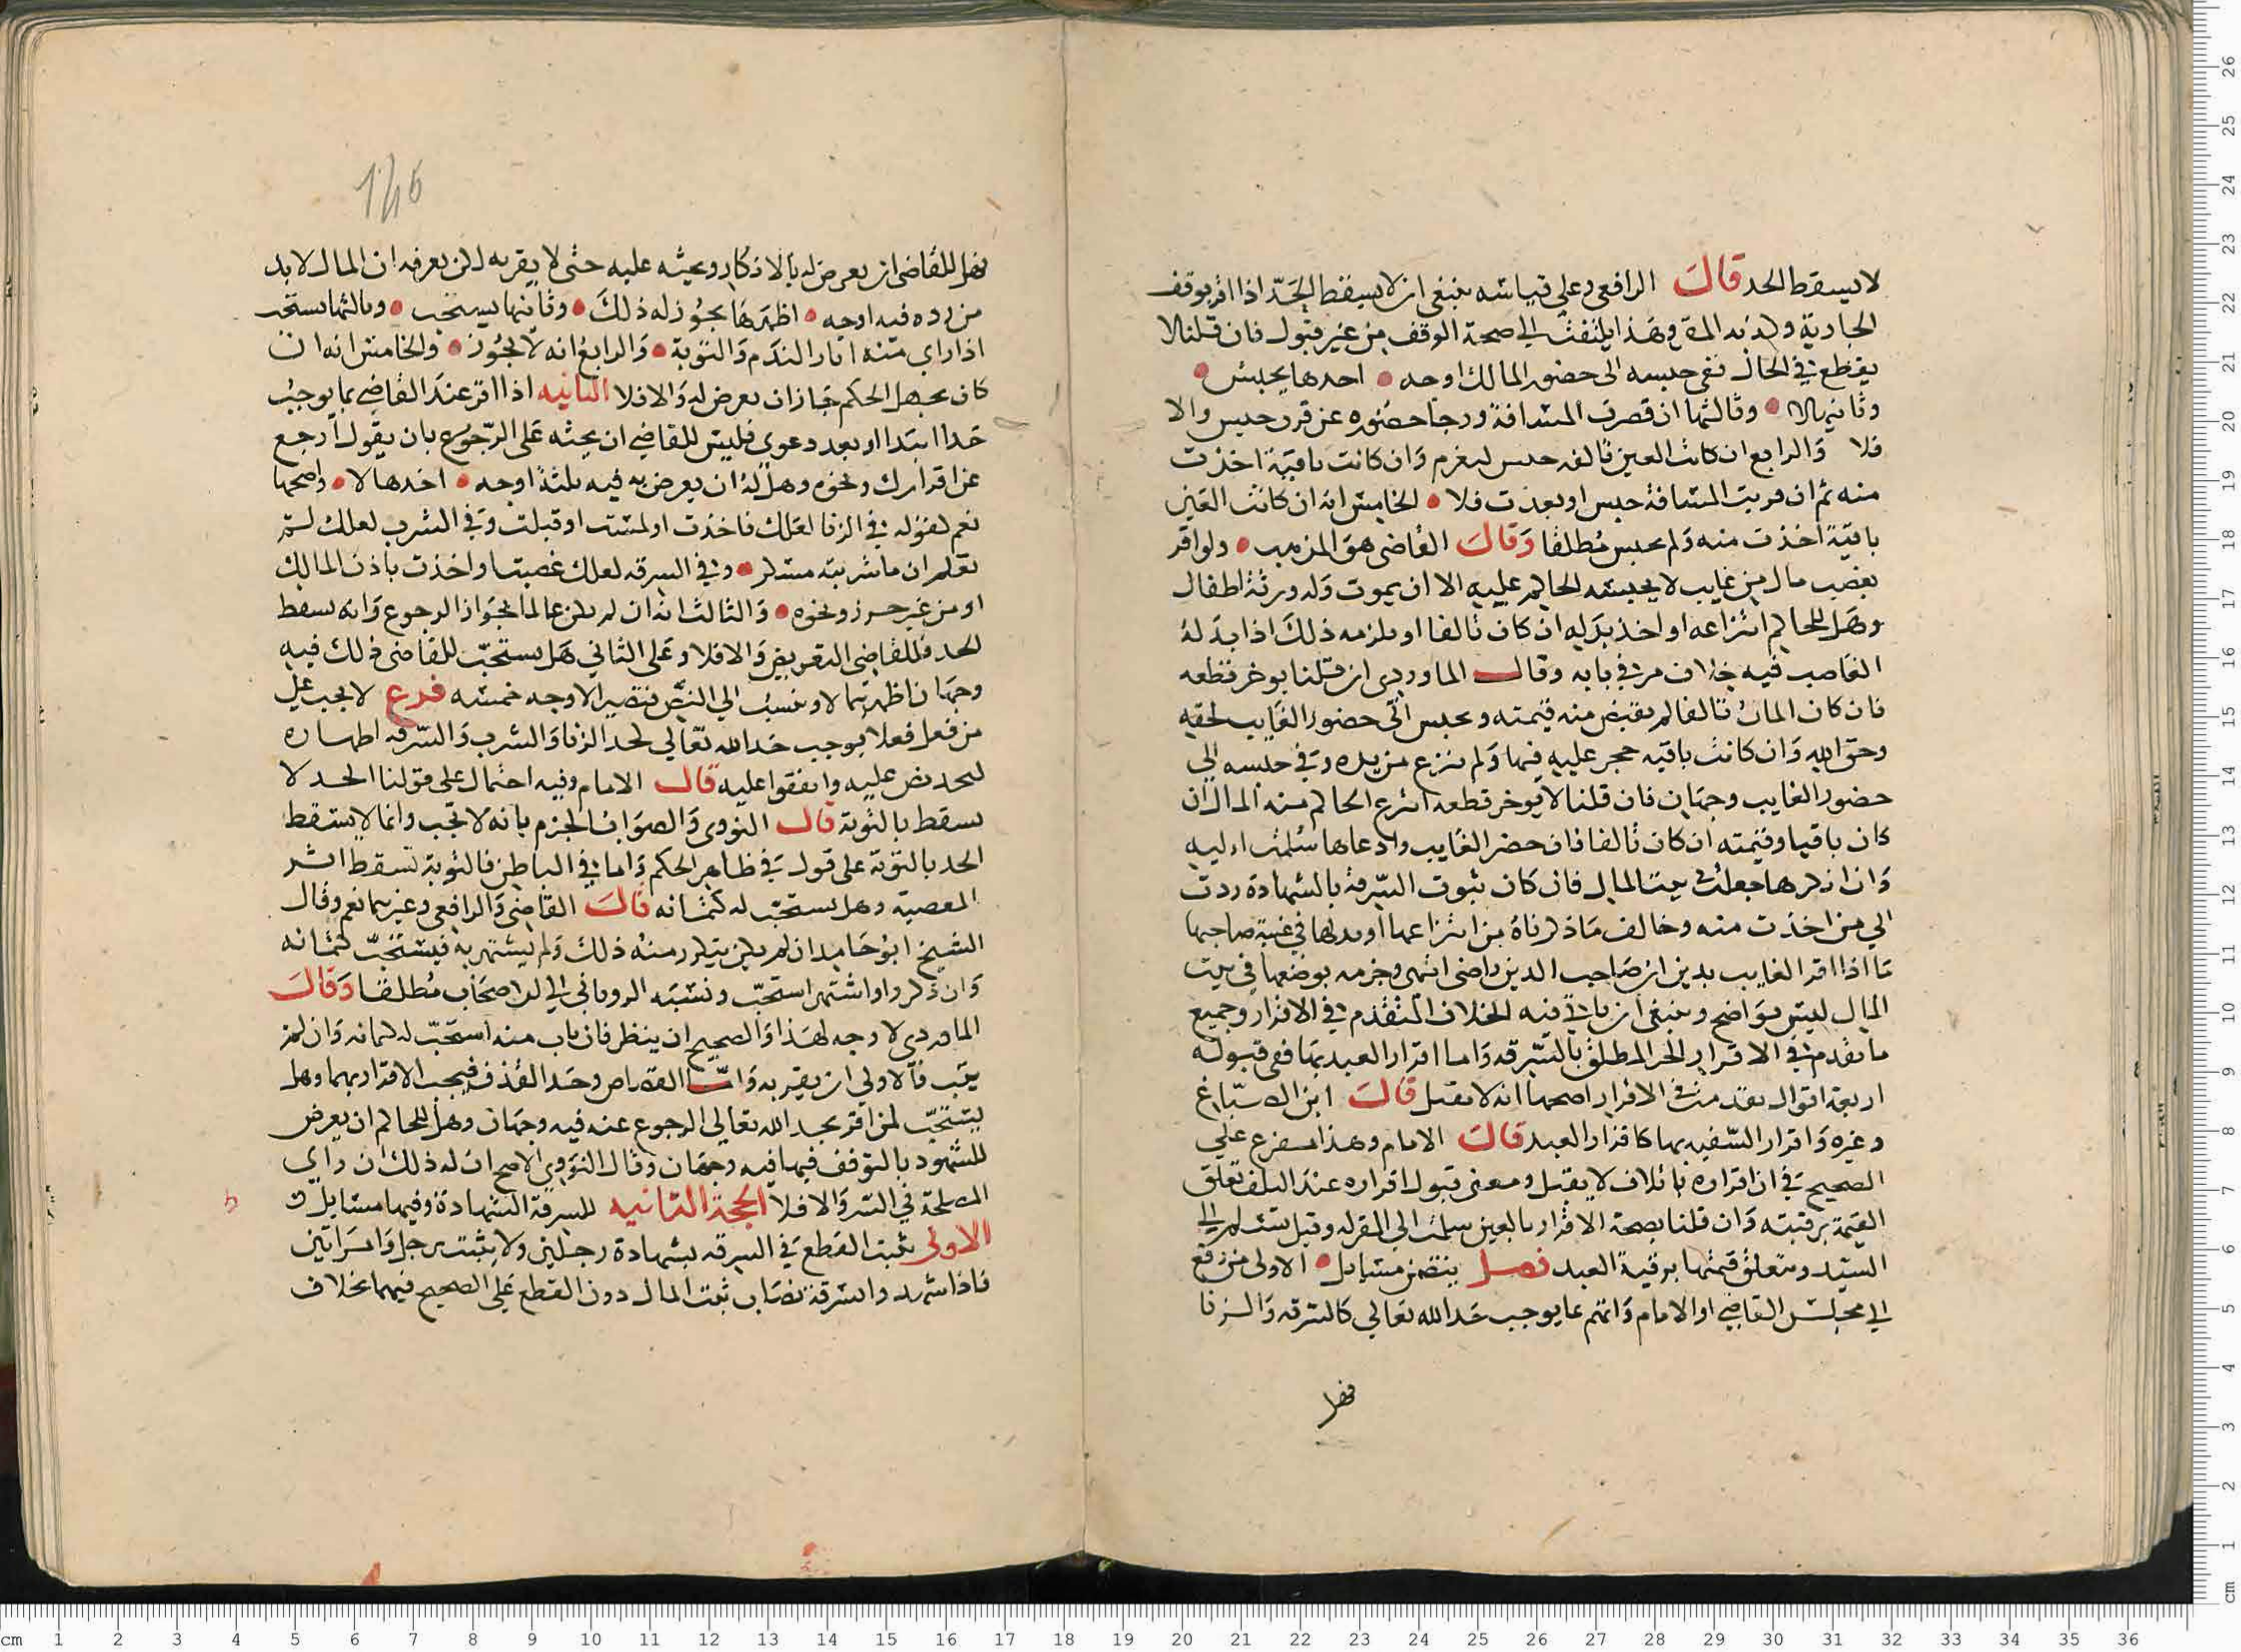 لا يسقط الحد قال الرافعي وعلى قياسه ينبغي ان لا يسقط الحد اذا اقر بوقف
الجارية وهذا يلتفت الى صحة الوقف من غير قبول فان قلنا لا
يقطع في الحال ففي حبسه الى حضور المالك اوجه احدها يحبس
وثانيها لا وثالثها ان قصرت المسافة ورجا حضوره عن قرب حبس والا
فلا والرابع ان كانت العين تالفه حبس ليغرم وان كانت باقية اخذت
منه ثم ان قربت المسافة حبس او بعدت فلا الخامس انه ان كانت العين
باقية اخذت منه ولم يحبس مطلقا وقال القاضي هو المذهب ولو اقر
بغصب مال من غايب لا يحبسه الحاكم عليه الا ان يموت وله ورثة اطفال
وهل للحاكم انتزاعه او اخذ بدله ان كان تالفا او يلزمه ذلك اذا بدله
الغاصب فيه خلاف مر في بابه وقال الماوردي ان قلنا يوخر قطعه
فان كان المال تالفا لم يقبض منه قيمته وحبس الى حضور الغايب لحقه
وحق الله وان كانت باقيه حجر عليه فيها ولم ينزع من يده وفي حبسه الى
حضور الغايب وجهان فان قلنا لا يوخر قطعه انتزع الحاكم منه المال ان
كان باقيا وقيمته ان كان تالفا فان حضر الغايب وادعاها سلمت اليه
وان انكرها جعلت في بيت المال فان كان ثبوت السرقة بالشهادة ردت
الي من اخذت منه وخالف ما ذكرناه من انتزاعها او بدلها في غيبة صاحبها
ما اذا اقر الغايب بدين ان صاحب الدين راضى انتهى وجزمه بوضعها في بيت
المال ليس بواضح وينبغي ان ياتي فيه الخلاف المتقدم في الاقرار وجميع
ما تقدم في الاقرار الحر المطلق بالسرقه واما اقرار العبد بها ففى قبوله
اربعة اقوال تقدمت في الاقرار اصحها انه لا يقبل قال ابن الصباغ
وغيره واقرار السفيه بها كاقرار العبد قال الامام وهذا مفرع علي
الصحيح في ان اقراره باتلاف لا يقبل ومعنى قبول اقراره عند التلف تعلق
القيمة برقبته وان قلنا بصحة الاقرار بالعين سلمت الى المقر له وقيل تسلم الى
السيد وتتعلق قيمتها برقبة العبد فصل يتضمن مسايل الاولى من رفع
الي مجلس القاضي او الامام واتهم بما يوجب حد الله تعالي كالسرقه والزنا
فهل
146
فهل للقاضي ان يعرض له بالانكار ويحثه عليه حتى لا يقر به لكن يعرفه ان المال لا بد
من رده فيه اوجه اظهرها يجوز له ذلك وثانيها يستحب وثالثها يستحب
اذا راى منه اثار الندم والتوبة والرابع انه لا يجوز والخامس انه ان
كان يجهل الحكم جاز ان يعرض له والا فلا الثانيه اذا اقر عند القاضي بما يوجب
حدا ابتدا او بعد دعوى فليس للقاضي ان يحثه على الرجوع بان يقول ارجع
عن اقرارك ونحوه وهل له ان يعرض به فيه ثلثة اوجه احدها لا واصحها
نعم لقوله في الزنا لعلك فاخذت او لمست او قبلت وفي الشرب لعلك لم
تعلم ان ما شربته مسكر وفي السرقه لعلك غصبت او اخذت باذن المالك
او من غير حرز ونحوه والثالث انه ان لم يكن عالما بجواز الرجوع وانه يسقط
الحد فللقاضي التعريض والا فلا وعلى الثاني هل يستحب للقاضي ذلك فيه
وجهان اظهرهما لا وينسب الي النص فتصير الاوجه خمسه فرع لا يجب على
من فعل فعلا يوجب حدا لله تعالي كحد الزنا والشرب والسرقه اظهاره
ليحد نص عليه واتفقوا عليه قال الامام وفيه احتمال على قولنا الحد لا
يسقط بالتوبة قال النووى والصواب الجزم بانه لا تجب وانما لا يسقط
الحد بالتوبة على قول في ظاهر الحكم واما في الباطن فالتوبة تسقط اثر
المعصية وهل يستحب له كتمانه قال القاضي والرافعي وغيرهما نعم وقال
الشيخ ابو حامد ان لم يكن يتكرر منه ذلك ولم يشتهر به فيستحب كتمانه
وان تكرر او اشتهر استحب ونسبه الروياني الى الاصحاب مطلقا وقال
الماوردي لا وجه لهذا والصحيح ان ينظر فان تاب منه استحب له كتمانه وان لم
يتب فالاولى ان يقر به واما القصاص وحد القذف فيجب الاقرار بهما وهل
يستحب لمن اقر بحد الله تعالى الرجوع عنه فيه وجهان وهل للحاكم ان يعرض
للشهود بالتوقف فيها فيه وجهان وقال النووي الاصح ان له ذلك ان راى
المصلحة في الستر والا فلا الحجة الثانيه للسرقة الشهادة وفيها مسايل
الاولى يثبت القطع في السرقه بشهادة رجلين ولا يثبت برجل وامراتين
فاذا شهدوا بسرقة نصاب ثبت المال دون القطع على الصحيح فيهما بخلاف